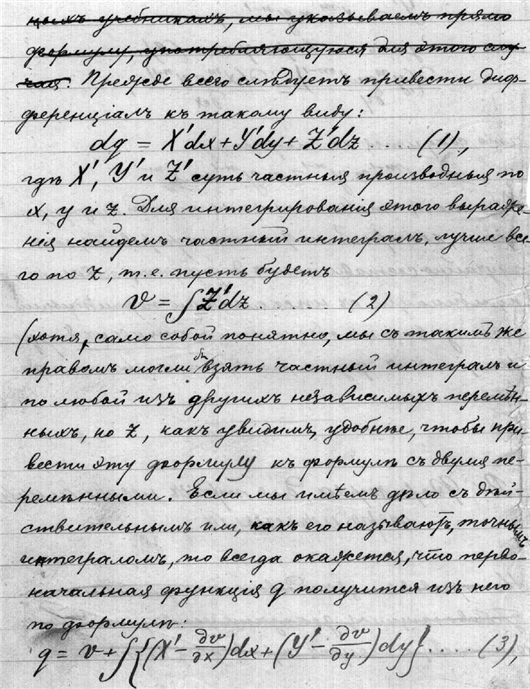 ныхъ учебникахъ, мы указываемъ прямо
формулу, употребляющуюся для этого слу-
чая. Прежде всего слѣдуетъ привести диф-
ференціалъ къ такому виду:
dq = X'dx + Y'dy + Z'dz ... (1),
гдѣ X', Y' и Z' суть частныя производныя по
x, y и z. Для интегрированія этого выраже-
нія найдемъ частный интегралъ, лучше все-
го по z, т.е. пусть будетъ
v = ∫Z'dz ....... (2)
(хотя, само собой понятно, мы съ такимъ же
правомъ могли бы взять частный интегралъ и
по любой изъ другихъ независимыхъ перемѣн-
ныхъ, но z, какъ увидимъ, удобнѣе, чтобы при-
вести эту формулу къ формулѣ съ двумя пе-
ремѣнными. Если мы имѣемъ дѣло съ дѣй-
ствительнымъ или, какъ его называютъ, точнымъ
интеграломъ, то всегда окажется, что перво-
начальная функція q получится изъ него
по формулѣ:
q = v + ∫{(X' - ∂v/∂x)dx + (Y' - ∂v/∂y)dy} .... (3),